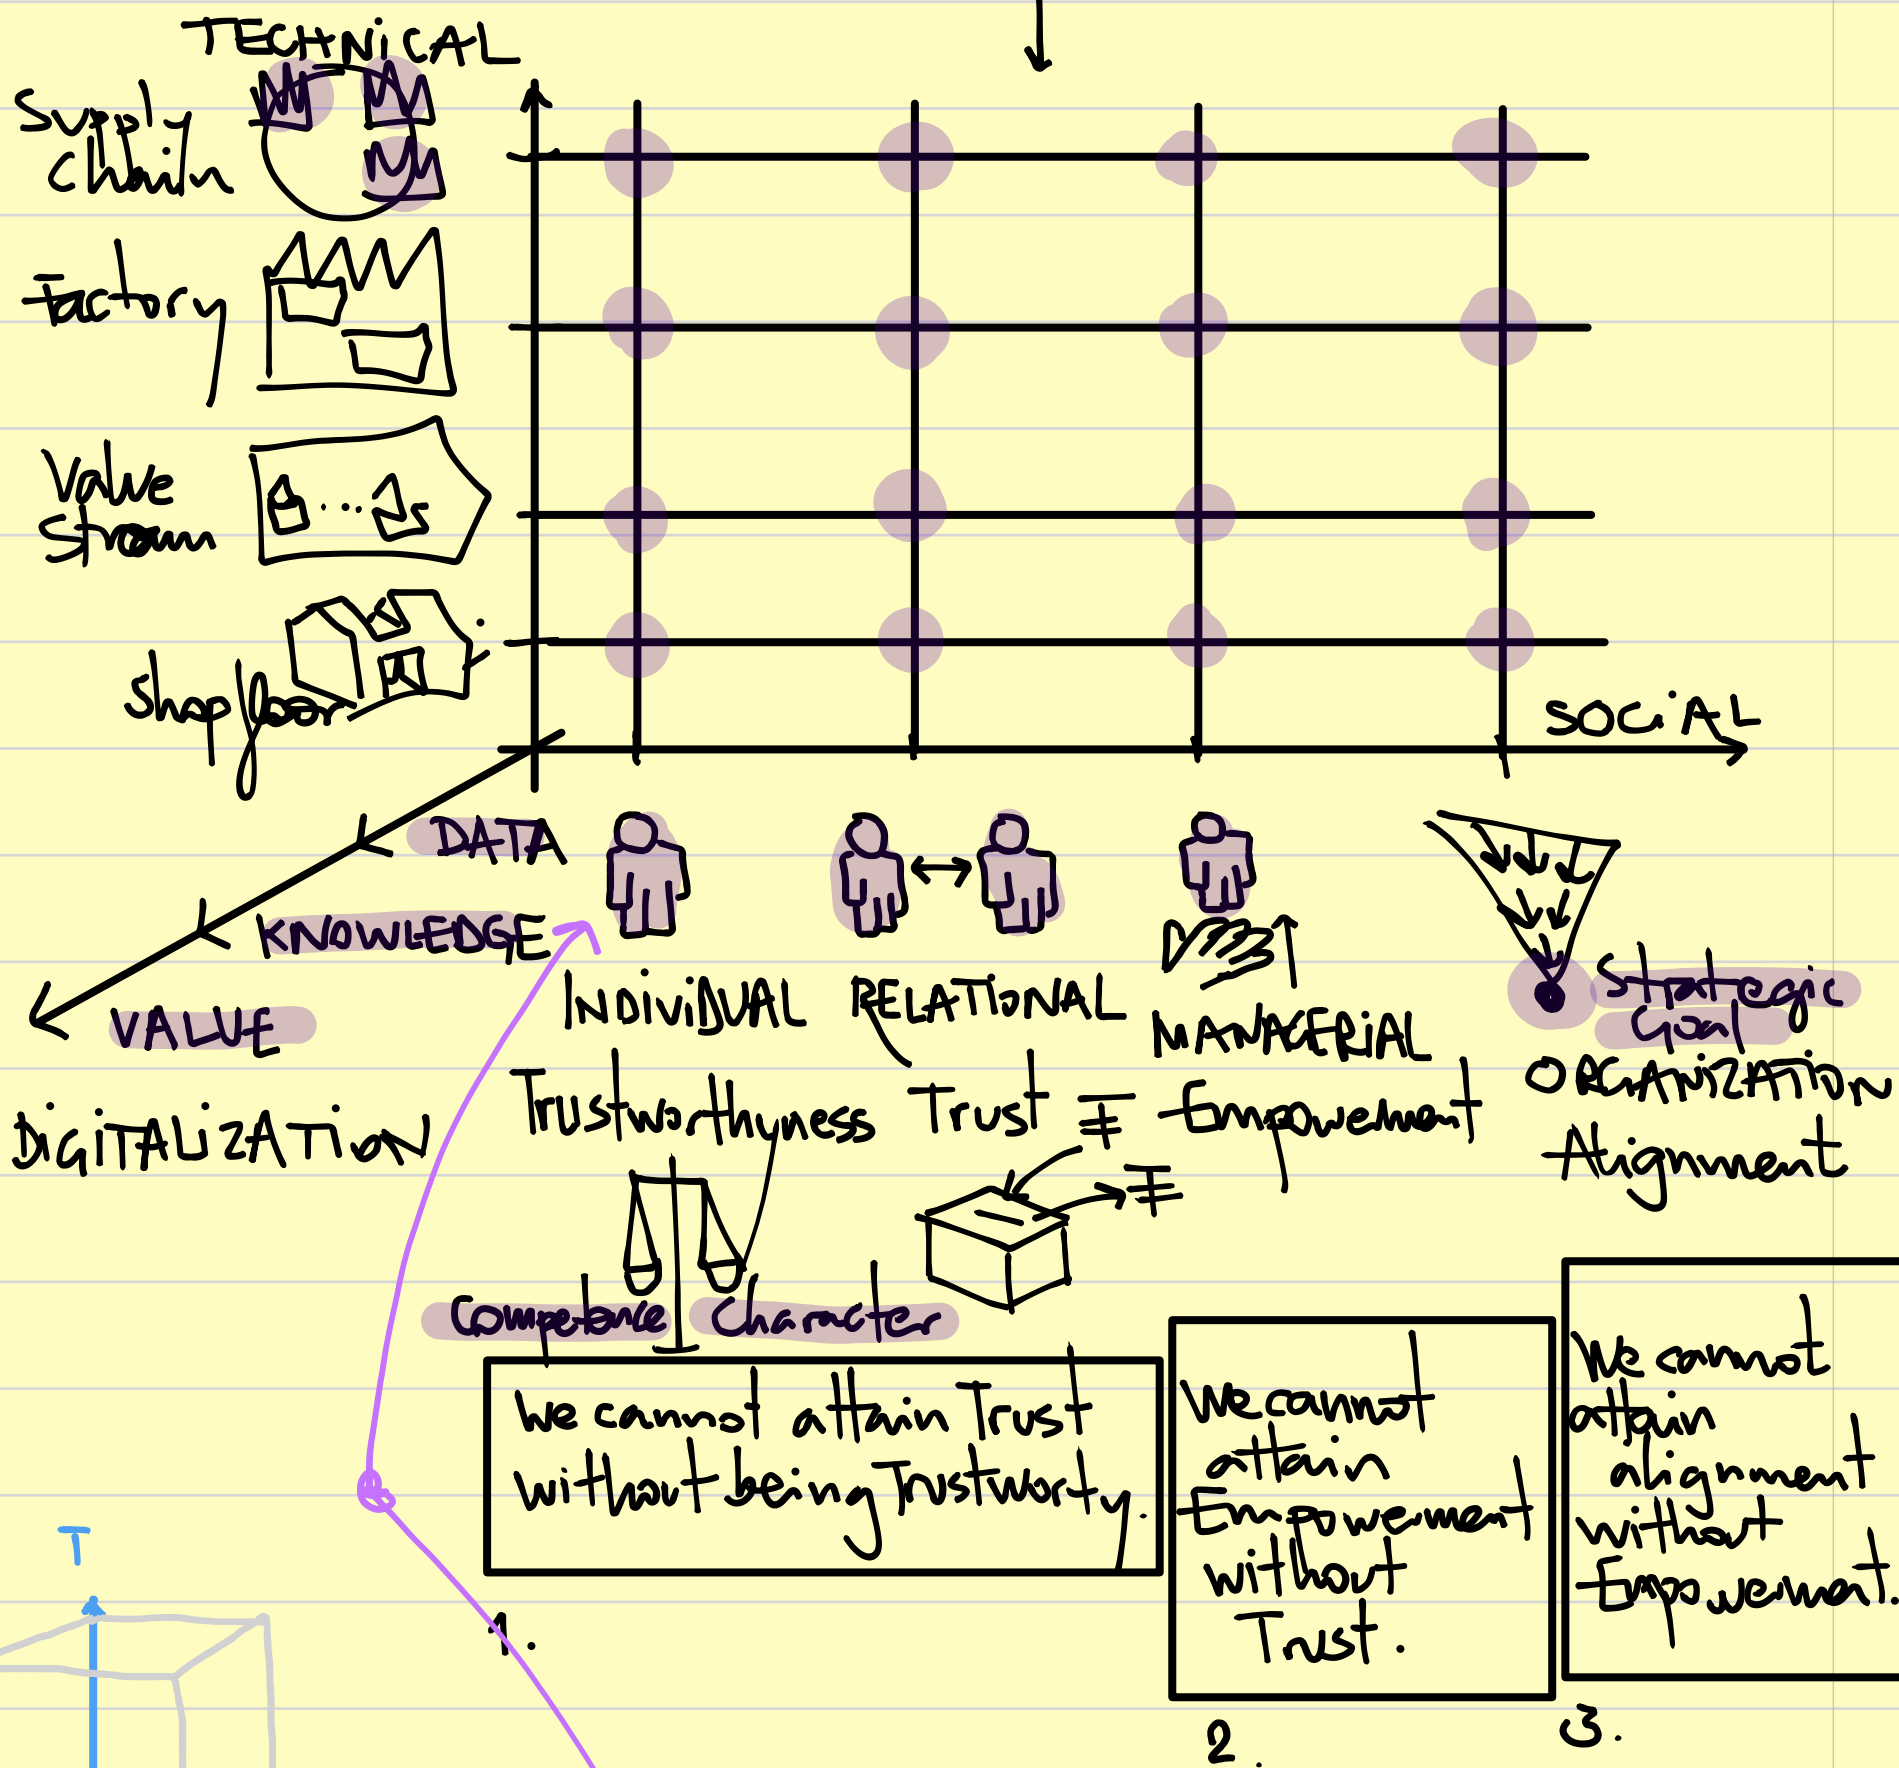 TECHNICAL
Supply
Chain
Factory
Value
Stream
Shopfloor
SOCiAL
DATA
KNOWLEDGE
VALUE
DiGiTALiZATioN
INDiViDUAL
RELATiONAL
MANAGERiAL
Strategic
Goal
ORGANiZATiON
Trustworthyness
Trust
Empowerment
Alignment
Competence
Character
We cannot attain Trust
without being Trustworty.
1.
We cannot
attain
Empowerment
without
Trust.
2.
We cannot
attain
alignment
without
Empowerment.
3.
T